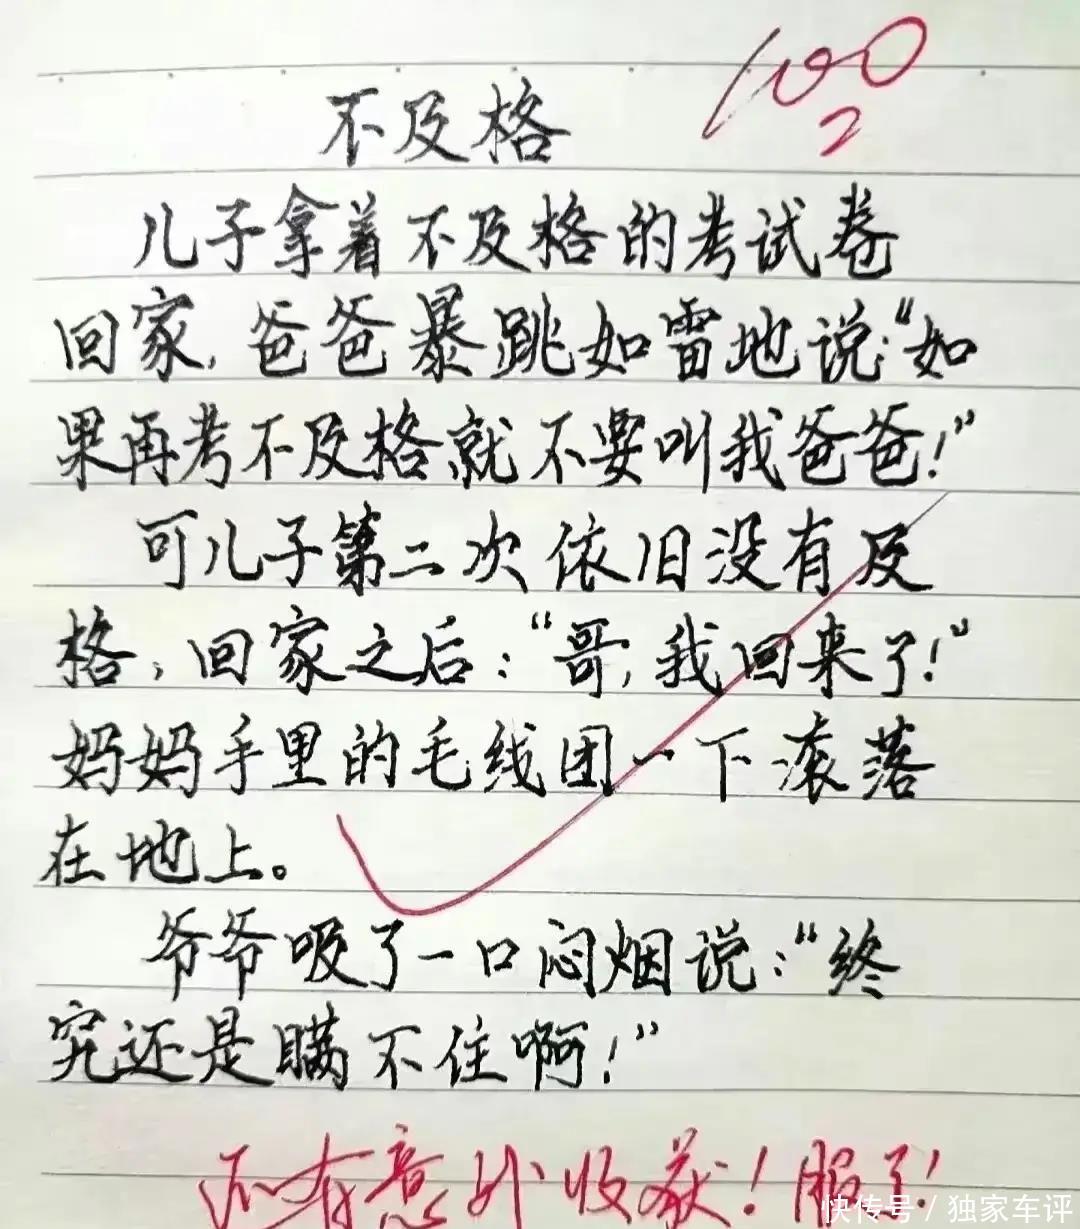 100
不及格
儿子拿着不及格的考试卷
回家，爸爸暴跳如雷地说：“如
果再考不及格就不要叫我爸爸！”
可儿子第二次依旧没有及
格，回家之后：“哥，我回来了！”
妈妈手里的毛线团一下滚落
在地上。
爷爷吸了一口闷烟说：“终
究还是瞒不住啊！”
还有意外收获！服了！
快传号／独家车评